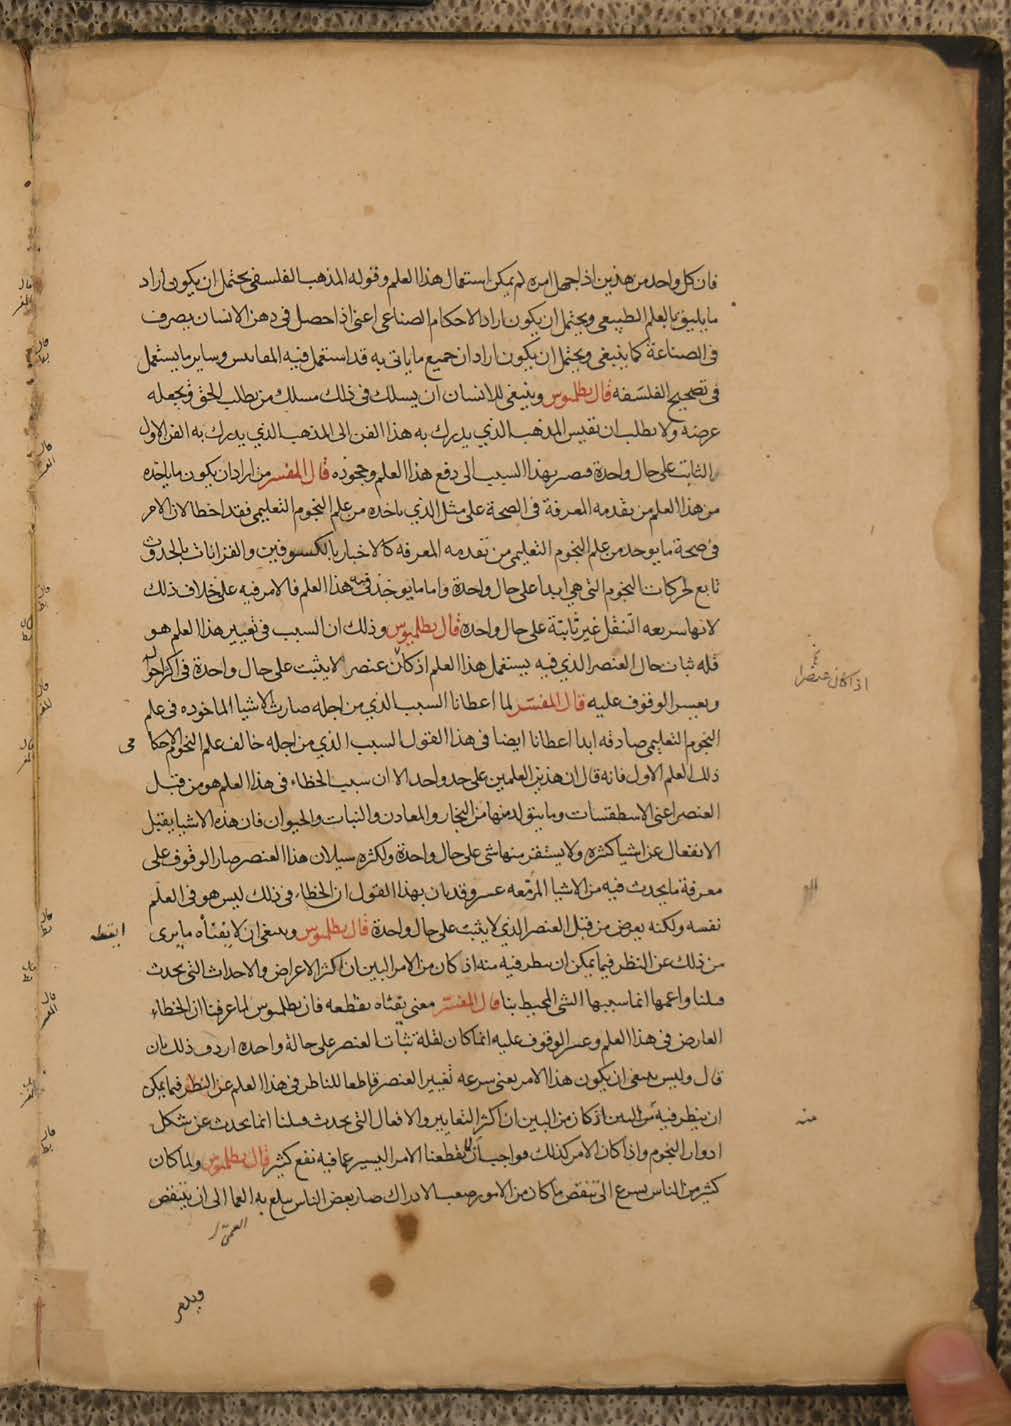 فان كل واحد من هذين اذا جهل امره لم يمكن استعمال هذا العلم وقوله المذهب الفلسفى يحتمل ان يكون اراد
ما يليق بالعلم الطبيعى ويحتمل ان يكون اراد الاحكام الصناعى اعنى اذا حصل فى ذهن الانسان يصرف
فى الصناعة كما ينبغى ويحتمل ان يكون اراد ان جميع ما ياتى به قد استعمل فيه المقاىىس وساير ما يستعمل
فى تصحيح الفلسفه قال بطلميوس وينبغى للانسان ان يسلك فى ذلك مسلك من يطلب الحق ويجعله
غرضه ولا يطلب ان نقيس المذهب الذي يدرك به هذا الفن الى المذهب الذي يدرك به الفن الاول
الثابت على حال واحدة فىصير بهذا السبب الى دفع هذا العلم وجحوده قال المفسر من اراد ان يكون ما ياخذه
من هذا العلم من تقدمه المعرفة فى الصحة على مثل الذي ياخذه من علم النجوم التعليمى فقد اخطا لان الامر
فى صحة ما يوخد من علم النجوم التعليمى من تقدمه المعرفه كالاخبار بالكسوفين والقرانات بالحدوث
تابع لحركات النجوم التى هى ابدا على حال واحدة واما ما يوخذ فيه هذا العلم فالامر فيه على خلاف ذلك
لانها سريعه التنقل غير ثابتة على حال واحده قال بطلميوس وذلك ان السبب فى تغيير هذا العلم هو
قله ثبات حال العنصر الذي فيه يستعمل هذا العلم اذ كان عنصر الا يثبت على حال واحدة فى اكثر احواله
ويعسر الوقوف عليه قال المفسر لما اعطانا السبب الذي من اجله صارت الاشيا الماخوده فى علم
النجوم التعليمى صادقه ابدا اعطانا ايضا فى هذا القول السبب الذي من اجله خالف علم النجوم الاحكا
مى
ذلك العلم الاول فانه قال ان هذين العلمين على حد واحد الا ان سبب الخطاء فى هذا العلم هو من قبل
العنصر اعنى الاسطقسات وما يتولد منها من البخار والمعادن والنبات والحيوان فان هذه الاشيا يقبل
الانفعال عن اشيا كثيره ولا يستقر منها شى على حال واحدة ولكثره سيلان هذا العنصر صار الوقوف على
معرفة ما يحدث فيه من الاشيا المزمعه عسر وقد بان بهذا القول ان الخطاء فى ذلك ليس هو فى العلم
نفسه ولكنه يعرض من قبل العنصر الذي لا يثبت على حال واحدة قال بطلميوس وينبغى ان لا يفثاه ما يرى
من ذلك عن النظر فيما يمكن ان ينظر فيه منه اذ كان من الامر البين ان اكثر الاعراض والاحداث التى يحدث
قبلنا واعمها انما سببها الشى المحيط بنا قال المفسر معنى يفثاه يقطعه فان بطلميوس لما عرفنا ان الخطاء
العارض فى هذا العلم وعسر الوقوف عليه انما كان لقلة ثبات العنصر على حالة واحده اردف ذلك بان
قال وليس ينبغى ان يكون هذا الامر يعنى سرعه تغيير العنصر قاطعا للناظر فى هذا العلم عن النظر فيما يمكن
ان ينظر فيه من البين اذ كان من البين ان اكثر التغايير والافعال التى يحدث قبلنا انما يحدث عن شكل
ادوار النجوم واذا كان الامر كذلك فواجب ان لا يقطعنا الامر اليسير عما فيه نفع كثير قال بطلميوس ولما كان
كثير من الناس يسرع الى تنقص ما كان من الامور صعب الادراك صار بعض الناس يبلغ به العما الى ان يتنقص
اذ اكان عنصرا
منه
العمى